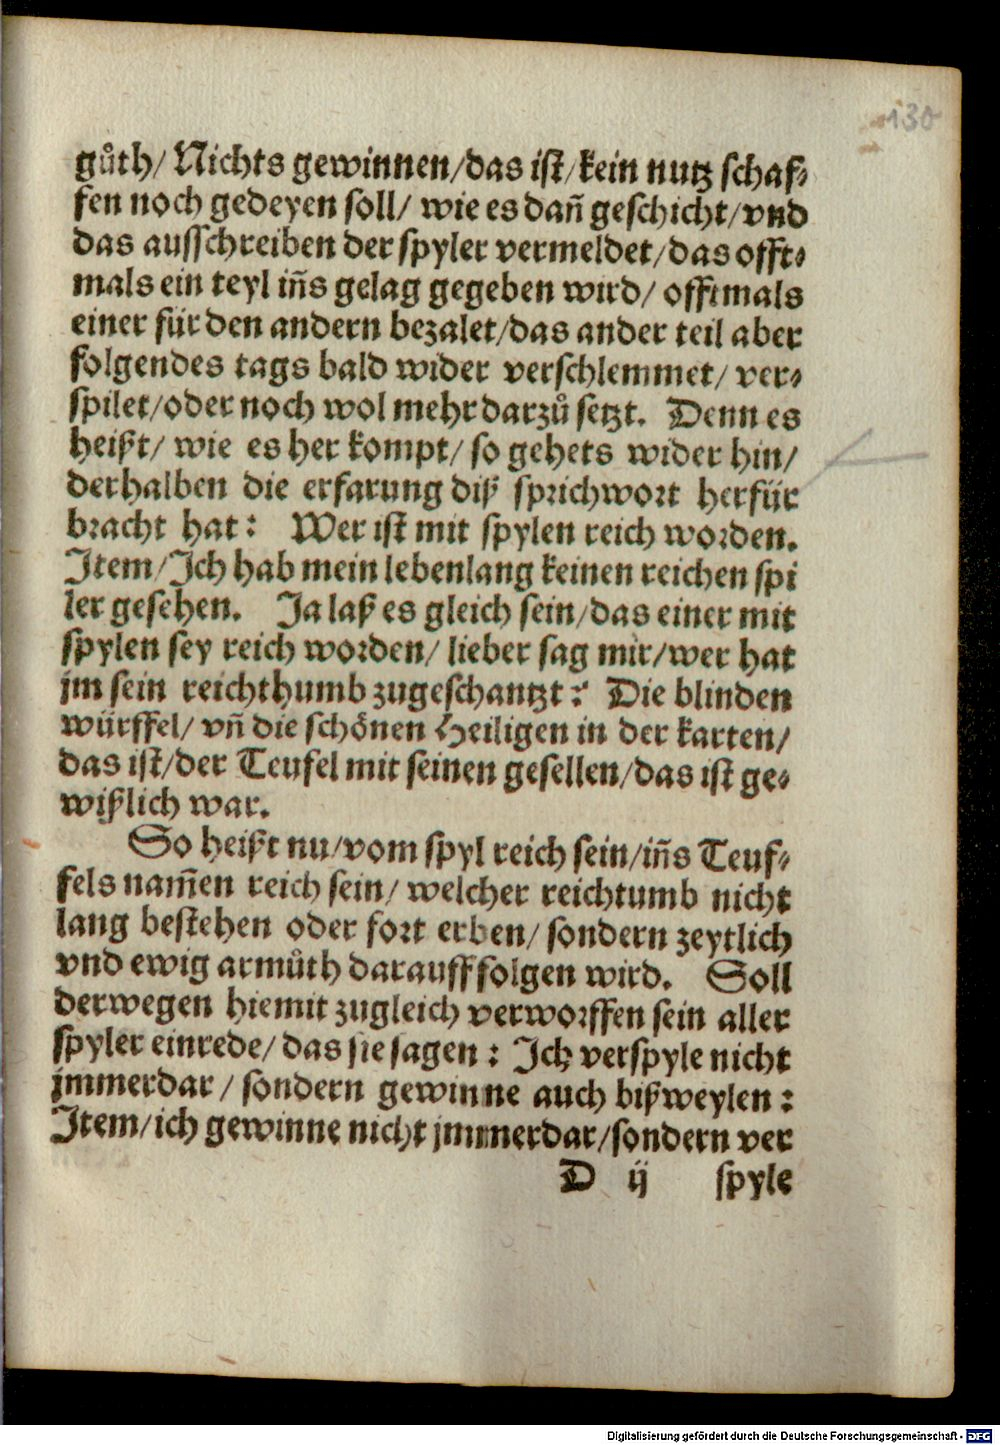 130
gůth/ Nichts gewinnen/das ist/kein nutz schaf⸗
fen noch gedeyen soll/ wie es dañ geschicht/vnd
das ausschreiben der spyler vermeldet/das offt⸗
mals ein teyl iñs gelag gegeben wird/ offtmals
einer für den andern bezalet/das ander teil aber
folgendes tags bald wider verschlemmet/ ver⸗
spilet/oder noch wol mehr darzů setzt. Denn es
heißt/ wie es her kompt/ so gehets wider hin/
derhalben die erfarung diß sprichwort herfür
bracht hat: Wer ist mit spylen reich worden.
Item/Ich hab mein lebenlang keinen reichen spi
ler gesehen. Ja laß es gleich sein/das einer mit
spylen sey reich worden/ lieber sag mir/wer hat
jm sein reichthumb zugeschantzt? Die blinden
würffel/ vñ die schönen Heiligen in der karten/
das ist/der Teufel mit seinen gesellen/das ist ge⸗
wißlich war.
So heißt nu/vom spyl reich sein/iñs Teuf⸗
fels nam̃en reich sein/ welcher reichtumb nicht
lang bestehen oder fort erben/ sondern zeytlich
vnd ewig armůth darauff folgen wird. Soll
derwegen hiemit zugleich verworffen sein aller
spyler einrede/ das sie sagen: Ich verspyle nicht
jmmerdar / sondern gewinne auch bißweylen:
Item/ich gewinne nicht jmmerdar/sondern ver
D ij spyle
Digitalisierung gefördert durch die Deutsche Forschungsgemeinschaft - DFG